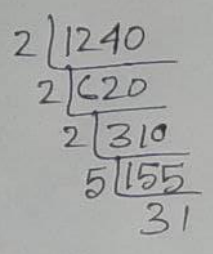 2 | 1240
2 | 620
2 | 310
5 | 155
31